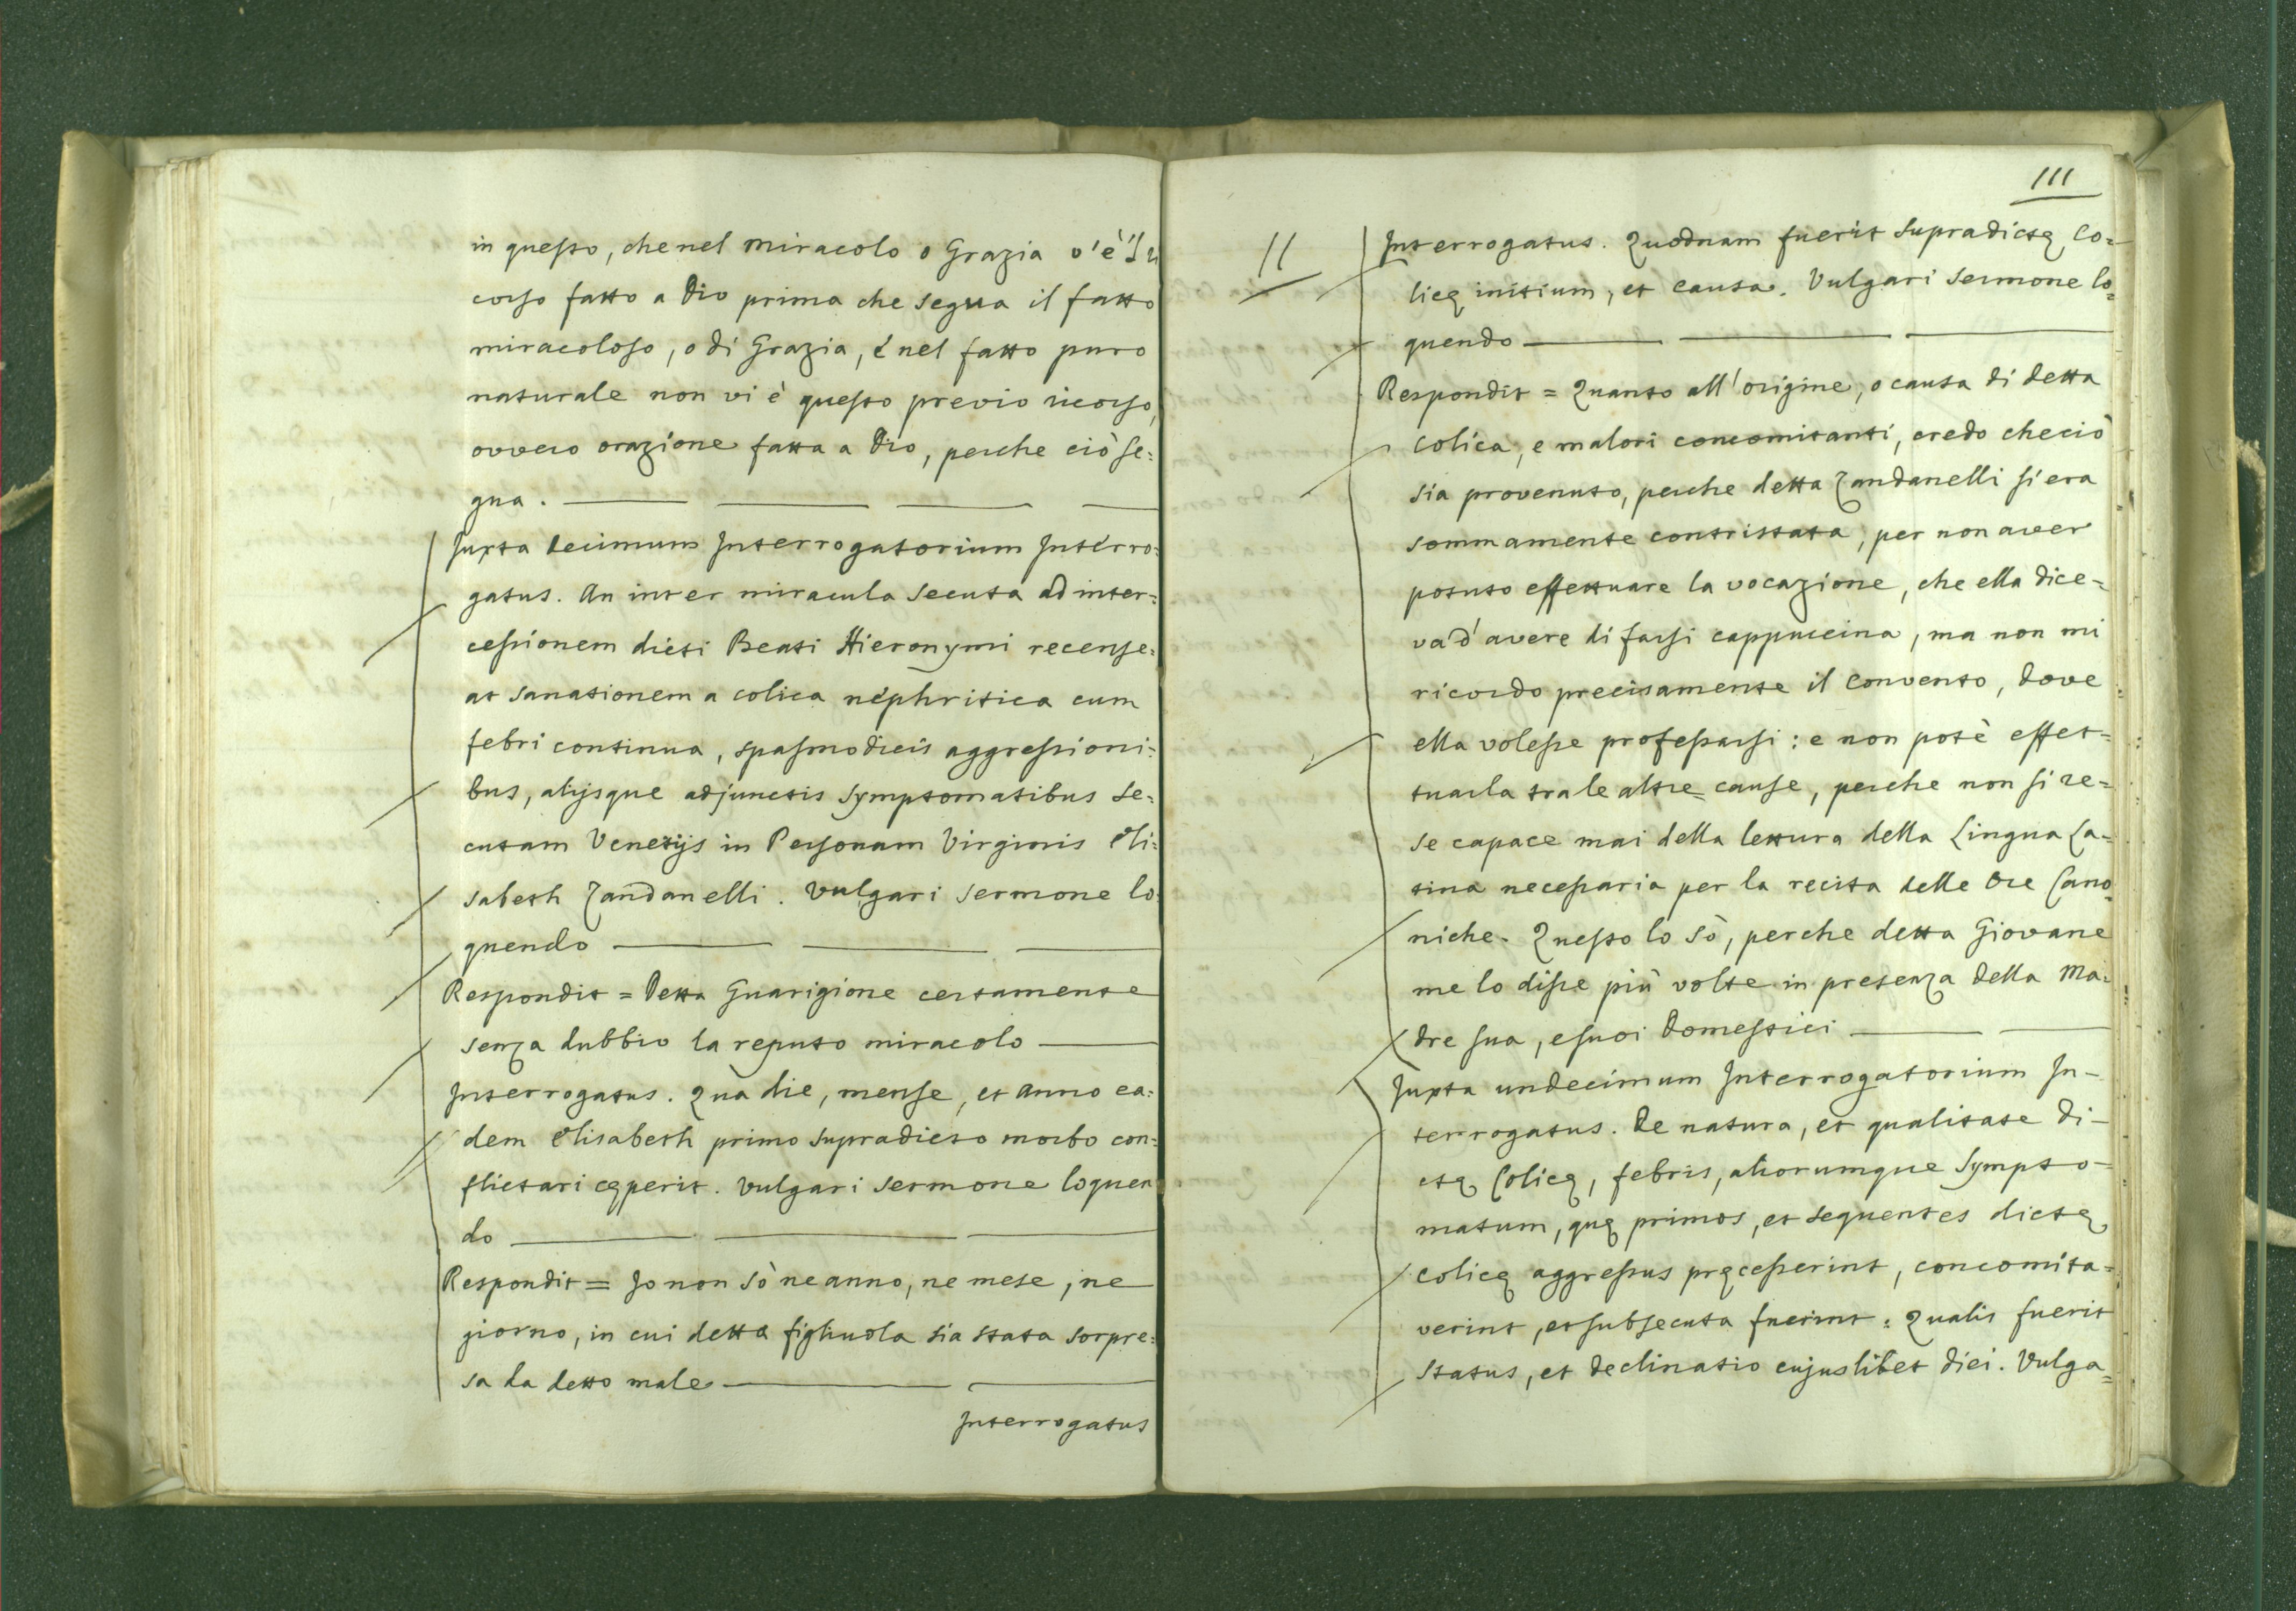 in questo, che nel miracolo o Grazia v'è il ri
corso fatto a Dio prima che segua il fatto
miracoloso, o di Grazia, è nel fatto puro
naturale non vi è questo previo ricorso,
ovvero orazione fatta a Dio, perche ciò se:
gua.
Juxta decimum Interrogatorium Interro:
gatus. An inter miracula secuta ad inter:
cessionem dicti Beati Hieronymi recense:
at sanationem a colica nephritica cum
febri continua, spasmodicis aggressioni:
bus, alijsque adjunctis symptomatibus se:
cutam Venetijs in Personam Virginis Eli:
sabeth Zandanelli. Vulgari sermone lo:
quendo
Respondit = Detta Guarigione certamente
senza dubbio la reputo miracolo
Interrogatus. Quà die, mense, et anno ea:
dem Elisabeth primo supradicto morbo con:
flictari cęperit. Vulgari sermone loquen
do
Respondit = Jo non sò ne anno, ne mese, ne
giorno, in cui detta figliuola sia stata sorpre:
sa da detto male
Interrogatus
111
11
Interrogatus. Quodnam fuerit supradictę Co=
licę initium, et causa. Vulgari sermone lo=
quendo
Respondit = Quanto all'origine, o causa di detta
colica, e malori concomitanti, credo che ciò
sia provenuto, perche detta Zandanelli si era
sommamente contristata, per non aver
potuto effettuare la vocazione, che ella dice=
va d'avere di farsi cappuccina, ma non mi
ricordo precisamente il convento, dove
ella volesse professarsi: e non potè effet=
tuarla tra le altre cause, perche non si re=
se capace mai della lettura della Lingua La=
tina necessaria per la recita delle Ore Cano=
niche. Questo lo sò, perche detta Giovane
me lo disse più volte in presenza della Ma=
dre sua, e suoi Domestici
Juxta undecimum Interrogatorium In-
terrogatus. De natura, et qualitate di-
ctę Colicę, febris, aliorumque sympto-
matum, quę primos, et sequentes dictę
colicę aggressus pręcesserint, concomita=
verint, et subsecuta fuerint: Qualis fuerit
status, et declinatio cujuslibet diei. Vulga=